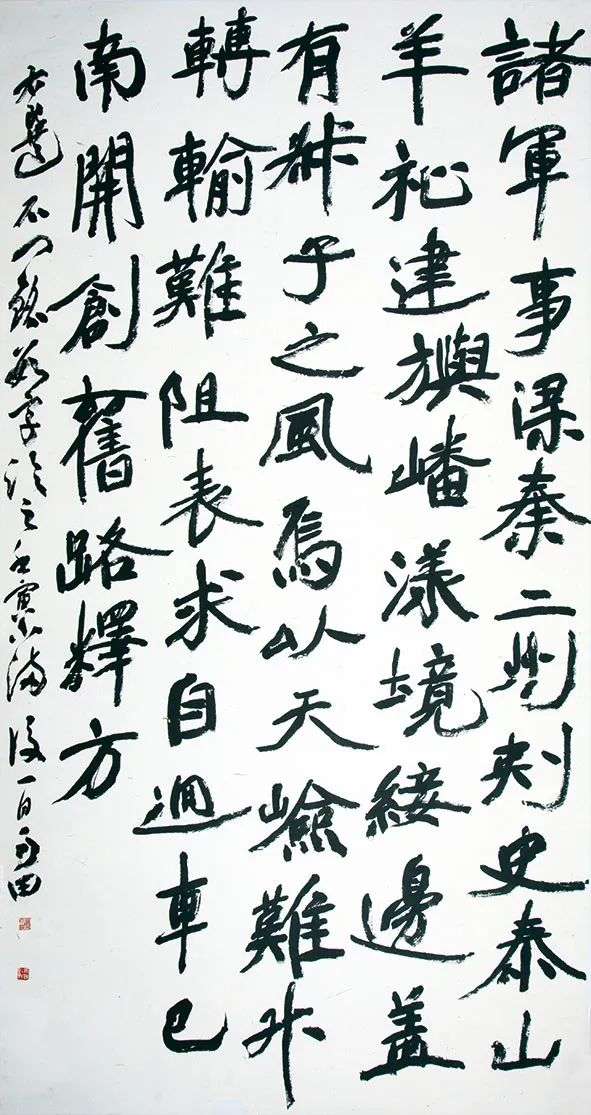 諸軍事梁秦二州刺史泰山
羊祉建旟嶓漾境綏邊蓋
有叔子之風焉以天嶮難升
轉輸難阻表求自迴車已
南開創舊路釋方
右石门銘數字临之壬寅小滿後一日田